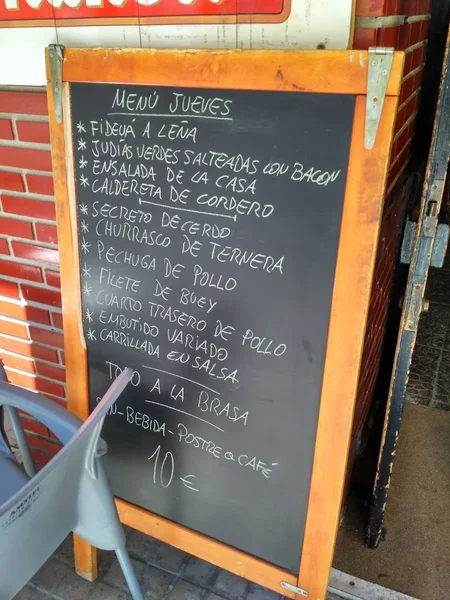 MENÚ JUEVES
* FIDEUÁ A LEÑA
* JUDÍAS VERDES SALTEADAS CON BACON
* ENSALADA DE LA CASA
* CALDERETA DE CORDERO
* SECRETO DE CERDO
* CHURRASCO DE TERNERA
* PECHUGA DE POLLO
* FILETE DE BUEY
* CUARTO TRASERO DE POLLO
* EMBUTIDO VARIADO
* CARRILLADA EN SALSA
TODO A LA BRASA
-BEBIDA-POSTRE O CAFÉ
10€